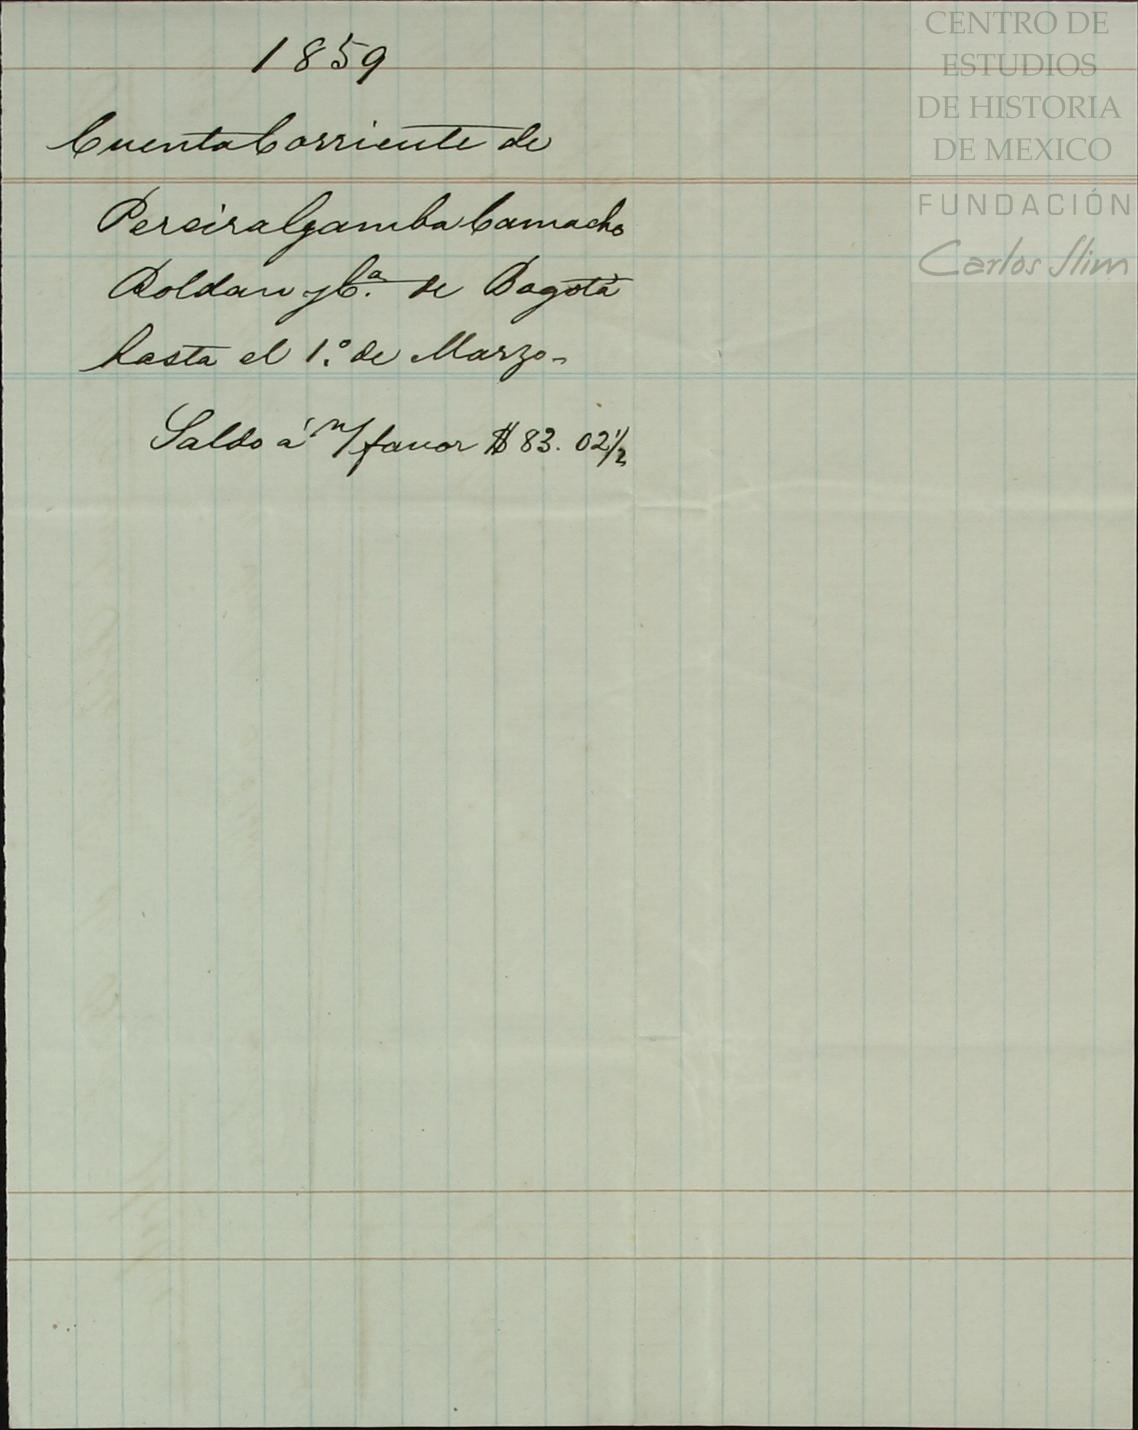 1859
Cuenta Corriente de
Pereira Gamba Camacho
Roldan y Cª. de Bogotá
hasta el 1.º de Marzo-
Saldo á n/ favor $ 83. 02½
CENTRO DE
ESTUDIOS
DE HISTORIA
DE MEXICO
FUNDACIÓN
Carlos Slim